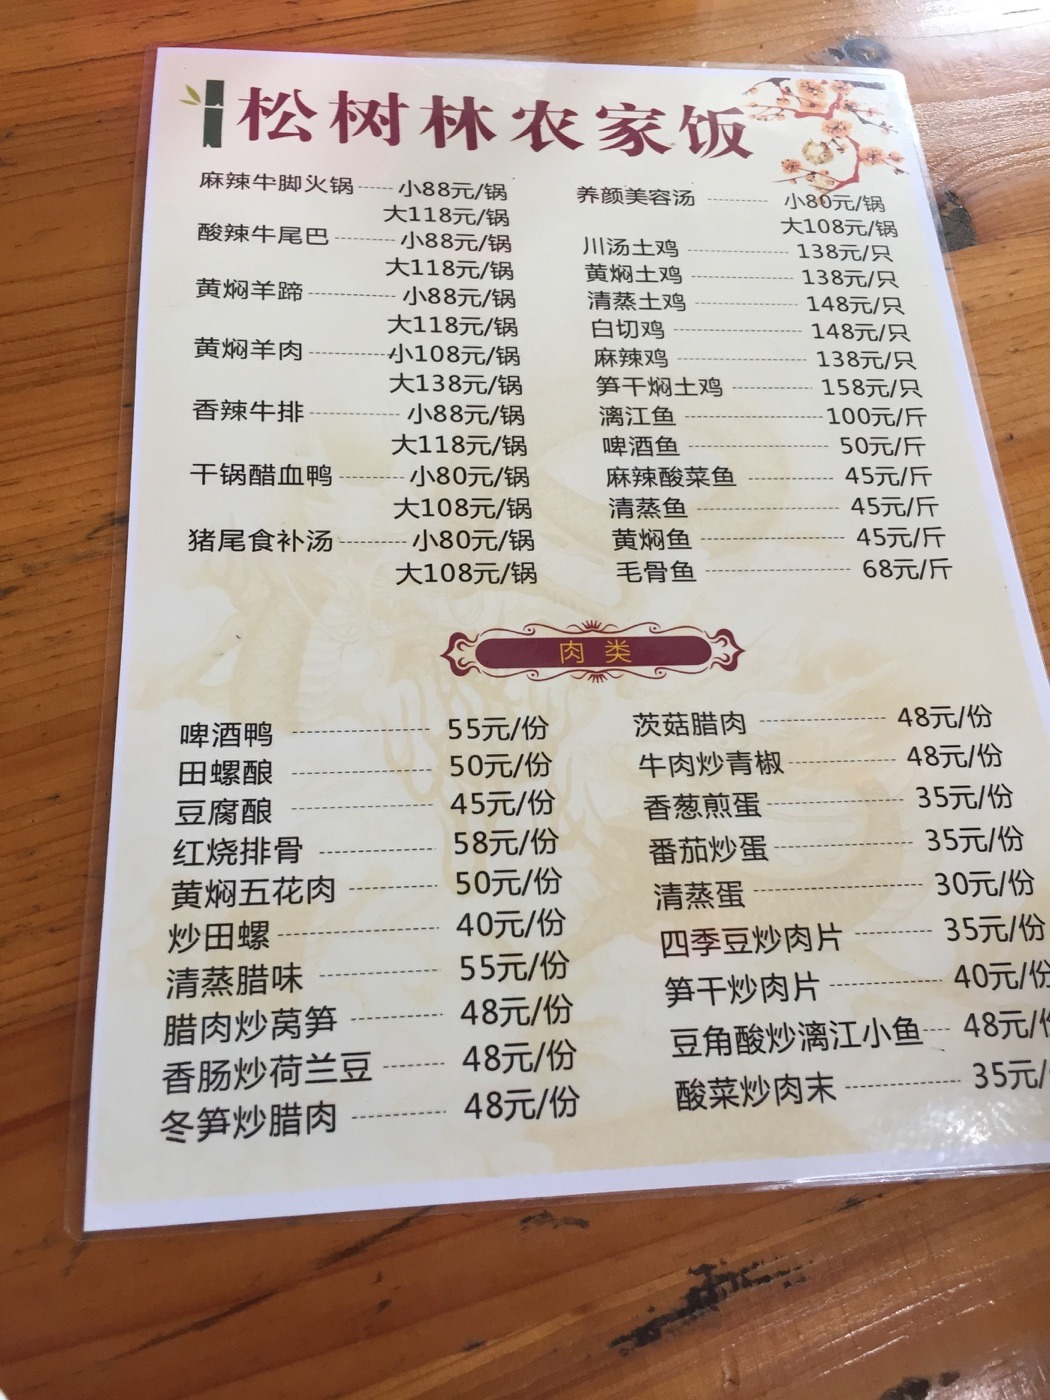 松树林农家饭
麻辣牛脚火锅 小88元/锅
大118元/锅
酸辣牛尾巴 小88元/锅
大118元/锅
黄焖羊蹄 小88元/锅
大118元/锅
黄焖羊肉 小108元/锅
大138元/锅
香辣牛排 小88元/锅
大118元/锅
干锅醋血鸭 小80元/锅
大108元/锅
猪尾食补汤 小80元/锅
大108元/锅
养颜美容汤 小80元/锅
大108元/锅
川汤土鸡 138元/只
黄焖土鸡 138元/只
清蒸土鸡 148元/只
白切鸡 148元/只
麻辣鸡 138元/只
笋干焖土鸡 158元/只
漓江鱼 100元/斤
啤酒鱼 50元/斤
麻辣酸菜鱼 45元/斤
清蒸鱼 45元/斤
黄焖鱼 45元/斤
毛骨鱼 68元/斤
肉类
啤酒鸭 55元/份
田螺酿 50元/份
豆腐酿 45元/份
红烧排骨 58元/份
黄焖五花肉 50元/份
炒田螺 40元/份
清蒸腊味 55元/份
腊肉炒莴笋 48元/份
香肠炒荷兰豆 48元/份
冬笋炒腊肉 48元/份
茨菇腊肉 48元/份
牛肉炒青椒 48元/份
香葱煎蛋 35元/份
番茄炒蛋 35元/份
清蒸蛋 30元/份
四季豆炒肉片 35元/份
笋干炒肉片 40元/份
豆角酸炒漓江小鱼 48元/份
酸菜炒肉末 35元/